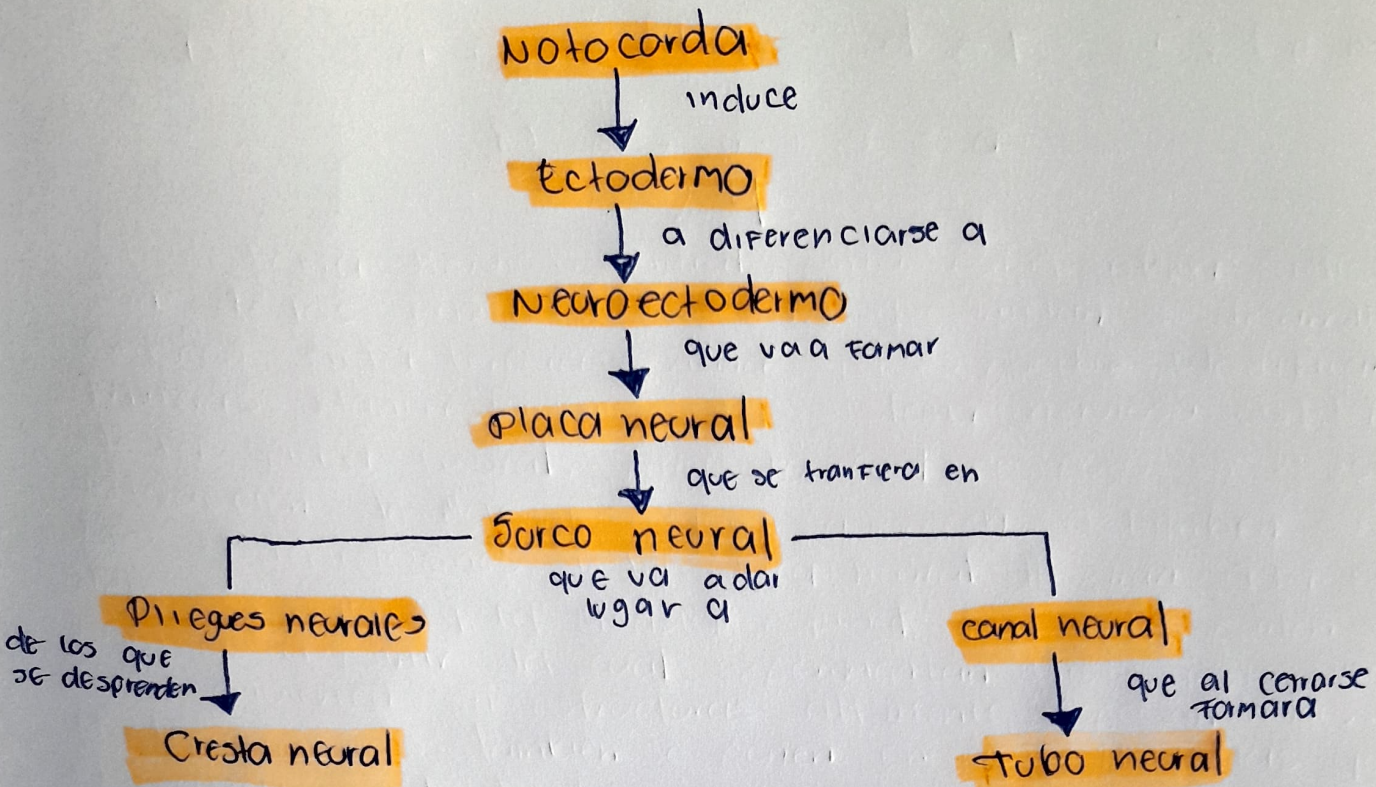 Notocorda
induce
Ectodermo
a diferenciarse a
Neuroectodermo
que va a formar
Placa neural
que se tranfiera en
Surco neural
que va a dar
lugar a
Pliegues neurales
de los que
se desprenden
Cresta neural
canal neural
que al cerrarse
formara
tubo neural